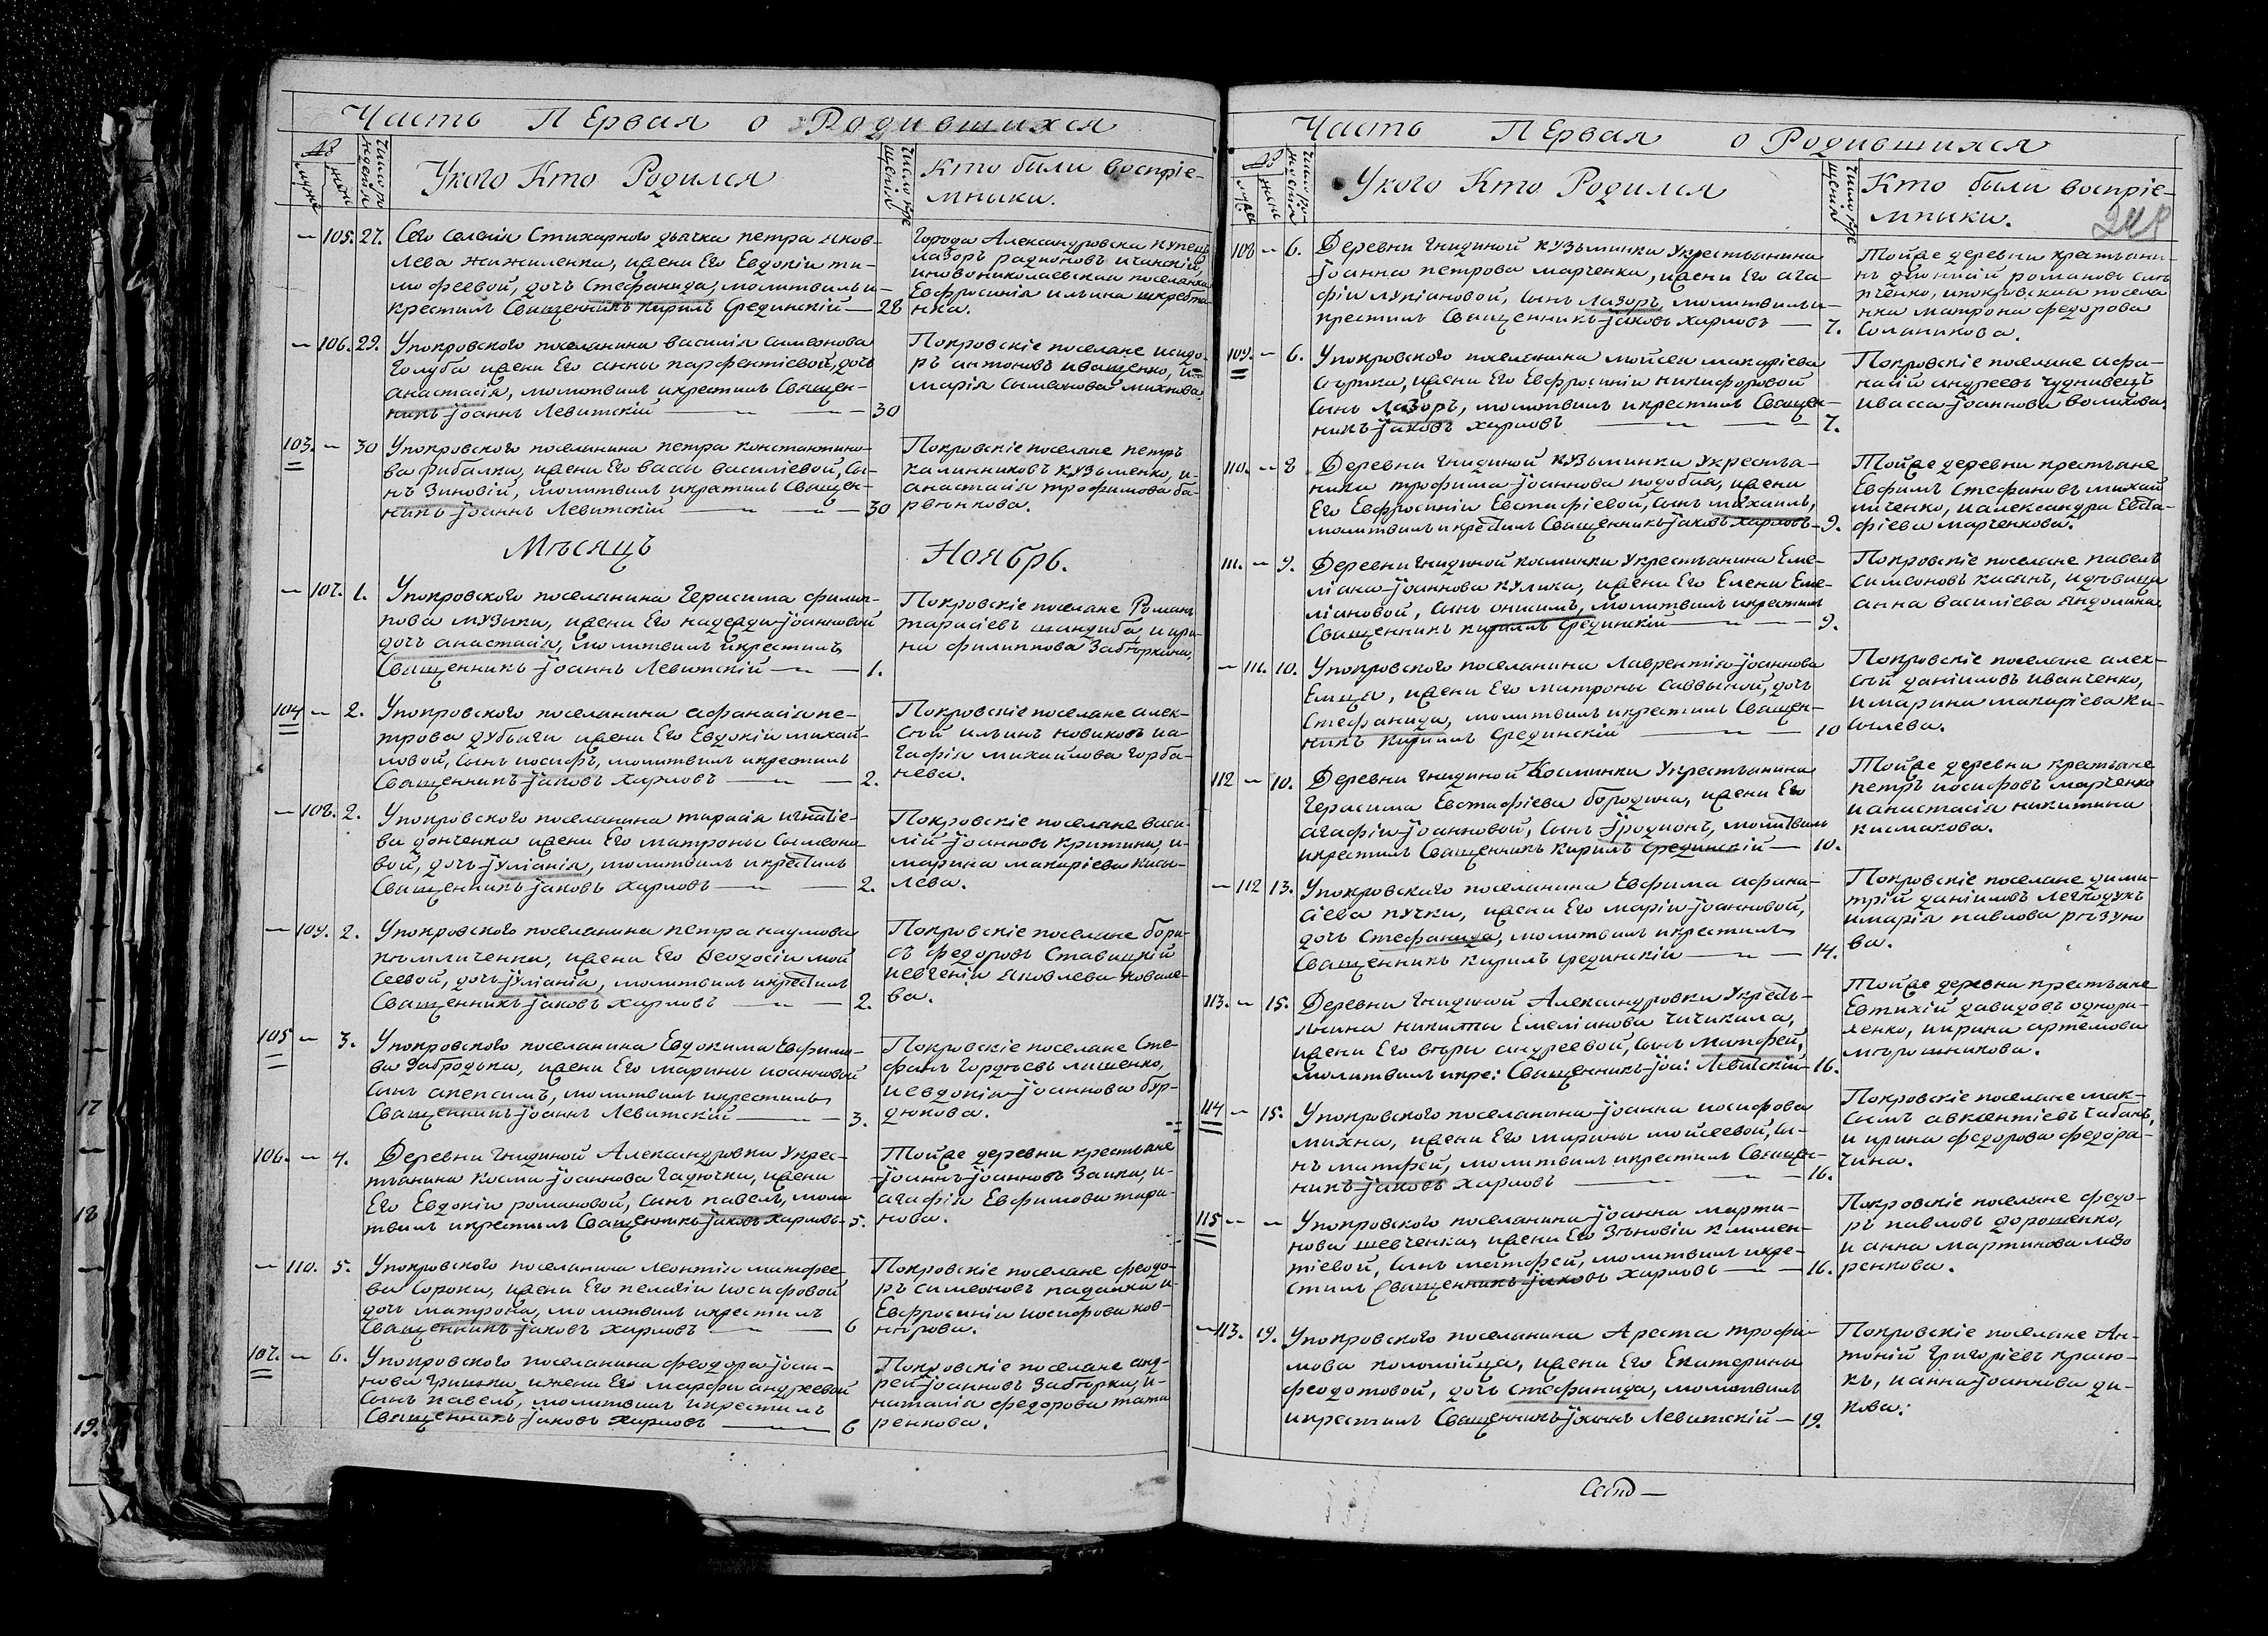 Часть ПЕрвая о Родившихся
№
мужес
женс
Число ро-
жденія
Укого Кто Родился
Число кре
щенія
Кто были воспріе-
мники.
— 105. 27. Сего Селенія Стихарного дьячка петра яков-
лева жижиленка, ижени Его Евдокіи ти-
мофеевой, дочь Стефанида, молитвилъ и-
крестилъ Священникъ Кирилъ Срединскій — 28
Города Александровска купецъ
лазоръ радионовъ
иновониколаевская поселанка
Евфросинія ильина шкребта
нка.
— 106. 29. Упокровского поселанина василія симеонова
Голуба ижени Его анны парфентіевой, дочь
анастасія, молитвилъ икрестилъ Священ-
никъ Іоаннъ Левитскій — 30
Покровскіе поселане исидо-
ръ антоновъ иващенко, и=
марія симеонова михнова.
103. — 30 Упокровского поселанина петра константино-
ва рибалки, ижени Его вассы василіевой, сы-
нъ Зиновій, молитвилъ икрестилъ Священ-
никъ Іоаннъ Левитскій — 30
Покровскіе поселане петръ
калинниковъ кузьменко, и-
анастасія трофимова ба-
рвѣнкова.
Мѣсяцъ Ноябрь.
— 107. 1. Упокровского поселанина Герасима филип-
пова музики, ижени Его надежди Іоанновой
дочь анастасія, молитвилъ икрестилъ
Священникъ Іоаннъ Левитскій — 1.
Покровскіе поселане Романъ
тарасіевъ шандиба, и ири-
на филиппова Забіоркина.
104 — 2. Упокровского поселанина афанасія пе-
трова дубяги ижени Его Евдокіи михай-
ловой, сынъ иосифъ, молитвилъ икрестилъ
Священникъ Іаковъ Харловъ — 2.
Покровскіе поселане алек-
сѣй ильинъ новиковъ иа-
гафія михайлова горба-
нева.
— 108. 2. Упокровского поселанина тарасія игнатіе-
ва донченка ижени Его матроны симеоно
вой, дочь Іуліанія, молитвилъ икрестилъ
Священникъ Іаковъ Харловъ — 2.
Покровскіе поселане васи-
лій Іоанновъ притика, и-
марина макаріева Кисы-
лева.
— 109. 2. Упокровского поселанина петра наумова
ижени Его Феодосіи мои
сеевой, дочь Іуліанія, молитвилъ икрестилъ
Священникъ Іаковъ Харловъ — 2.
Покровскіе поселане бори-
съ федоровъ Ставицкій
иевгенія яковлева ковале-
ва.
105 — 3. Упокровского поселанина Евдокима Евфимо-
ва Забродьки, ижени Его марины иоанновой
сынъ алексимъ, молитвилъ икрестилъ
Священникъ Іоаннъ Левитскій — 3.
Покровскіе поселане Сте-
фанъ Гордѣевъ лишенко,
иевдокія Іоаннова бур-
дюкова.
106. — 4. Деревни Гнидиной Александровки Укрес-
тьянина Косми Іоаннова Гадючки, ижени
Его Евдокіи романовой, сынъ павелъ, моли
твилъ икрестилъ Священникъ Іаковъ Харловъ — 5.
Тойже деревни крестьяне
Іоаннъ Іоанновъ Заика, и-
агафія Евфимова тара-
нова.
— 110. 5. Упокровского поселанина леонтія матфее-
ва Сороки, ижени Его пелагіи иосифовой
дочь матрона, молитвилъ икрестилъ
Священникъ Іаковъ Харловъ — 6
Покровскіе поселане феодо-
ръ симеоновъ падалка и-
Евфросинія иосифова ков-
нірова.
107. — 6. Упокровского поселанина феодора Іоан-
нова Гришки ижени Его марфы андреевой
сынъ павелъ, молитвилъ икрестилъ
Священникъ Іаковъ Харловъ — 6
Покровскіе поселане анд-
рей Іоанновъ Забіорка, и-
наталія федорова тата
ренкова.
Часть ПЕрвая о Родившихся
№
мужес
женс
Число ро-
жденія
Укого Кто Родился
Число кре
щенія
Кто были воспріе-
мники.
108 — 6. Деревни Гнидиной кузьминки Укрестьянина
Іоанна петрова марченка, ижени Его ага-
фіи лукіановой, сынъ лазоръ, молитвилъ и-
крестилъ Священникъ Іаковъ Харловъ — 7.
Тойже деревни крестьяни-
нъ діонисій романовъ
ипокровская посела
нка матрона федорова
Соланикова.
109. — 6. Упокровского поселанина мойсея макаріева
ижени Его Евфросиніи никифоровой
сынъ лазоръ, молитвилъ икрестилъ Священ-
никъ Іаковъ Харловъ — 7.
Покровскіе поселане афа-
насій андреевъ чуднивецъ
ивасса Іоаннова воликова.
110. — 8 Деревни Гнидиной кузьминки Укрестья-
нина трофима Іоаннова подобая, ижени
Его Евфросиніи Евстафіевой, сынъ михаилъ,
молитвилъ икрестилъ Священникъ Іаковъ Харловъ — 9.
Тойже деревни крестьяне
Евфимъ Стефановъ михай
личенко, иалександра Евста-
фіева марченкова.
111. — 9. Деревни Гнидиной Косминки Укрестьянина Еме-
ліана Іоаннова кулика, ижени Его Елени Еме-
ліановой, сынъ онисимъ, молитвилъ икрестилъ
Священникъ кирилъ Срединскій — 9.
Покровскіе поселане павелъ
симеоновъ касянъ, идѣвица
анна василіева яндолина.
— 111. 10. Упокровского поселанина Лаврентія Іоаннова
Емца, ижени Его матроны Саввыной, дочь
Стефанида, молитвилъ икрестилъ Священ-
никъ кирилъ Срединскій — 10
Покровскіе поселане алек-
сѣй даніиловъ иванченко,
имарина макаріева ки-
сылева.
112 — 10. Деревни Гнидиной Косминки Укрестьянина
Герасима Евстафіева бородина, ижени Его
агафіи Іоанновой, сынъ Іродионъ, молитвилъ
икрестилъ Священникъ Кирилъ Срединскій — 10.
Тойже деревни крестьяне
петръ иосифовъ марченко
ианастасія никитина
кисмакова.
— 112 13. Упокровскаго поселанина Евфима афана-
сіева пучки, ижени Его маріи Іоанновой,
дочь Стефанида, молитвилъ икрестилъ
Священникъ Кирилъ Срединскій — 14.
Покровскіе поселане дими-
трій даніиловъ Легкодухъ
имарія павлова рѣзуно
ва.
113. — 15. Деревни Гнидиной Александровки Укресть-
янина никиты Емеліанова Чичикала,
ижени Его вѣры андреевой, сынъ матфей,
молитвилъ икре: Священникъ Іоа: Левитскій — 16.
Тойже деревни крестьяне
Евтихій давидовъ однора-
ленко, иирина артемова
мѣрошникова.
114 — 15. Упокровского поселанина Іоанна иосифова
михна, ижени Его марины мойсеевой, сы-
нъ матфей, молитвилъ икрестилъ Священ-
никъ Іаковъ Харловъ — 16.
Покровскіе поселане мак-
симъ авксентіевъ Чабанъ,
и ирина федорова федора-
чина.
115 — — Упокровского поселанина Іоанна марти-
нова шевченка, ижени Его Зѣновіи климен-
тіевой, сынъ матфей, молитвилъ икре-
стилъ Священникъ Іаковъ Харловъ — 16.
Покровскіе поселане федо-
ръ павловъ дорошенко,
и анна мартинова лазо
ренкова.
— 113. 19. Упокровского поселанина Ареста трофи-
мова коломійца, ижени Его Екатерины
феодотовой, дочь Стефанида, молитвилъ
икрестилъ Священникъ Іоаннъ Левитскій — 19.
Покровскіе поселане Ан-
тоній Григоріевъ красю-
къ, ианна Іоаннова ди-
кова:
17
18
19.